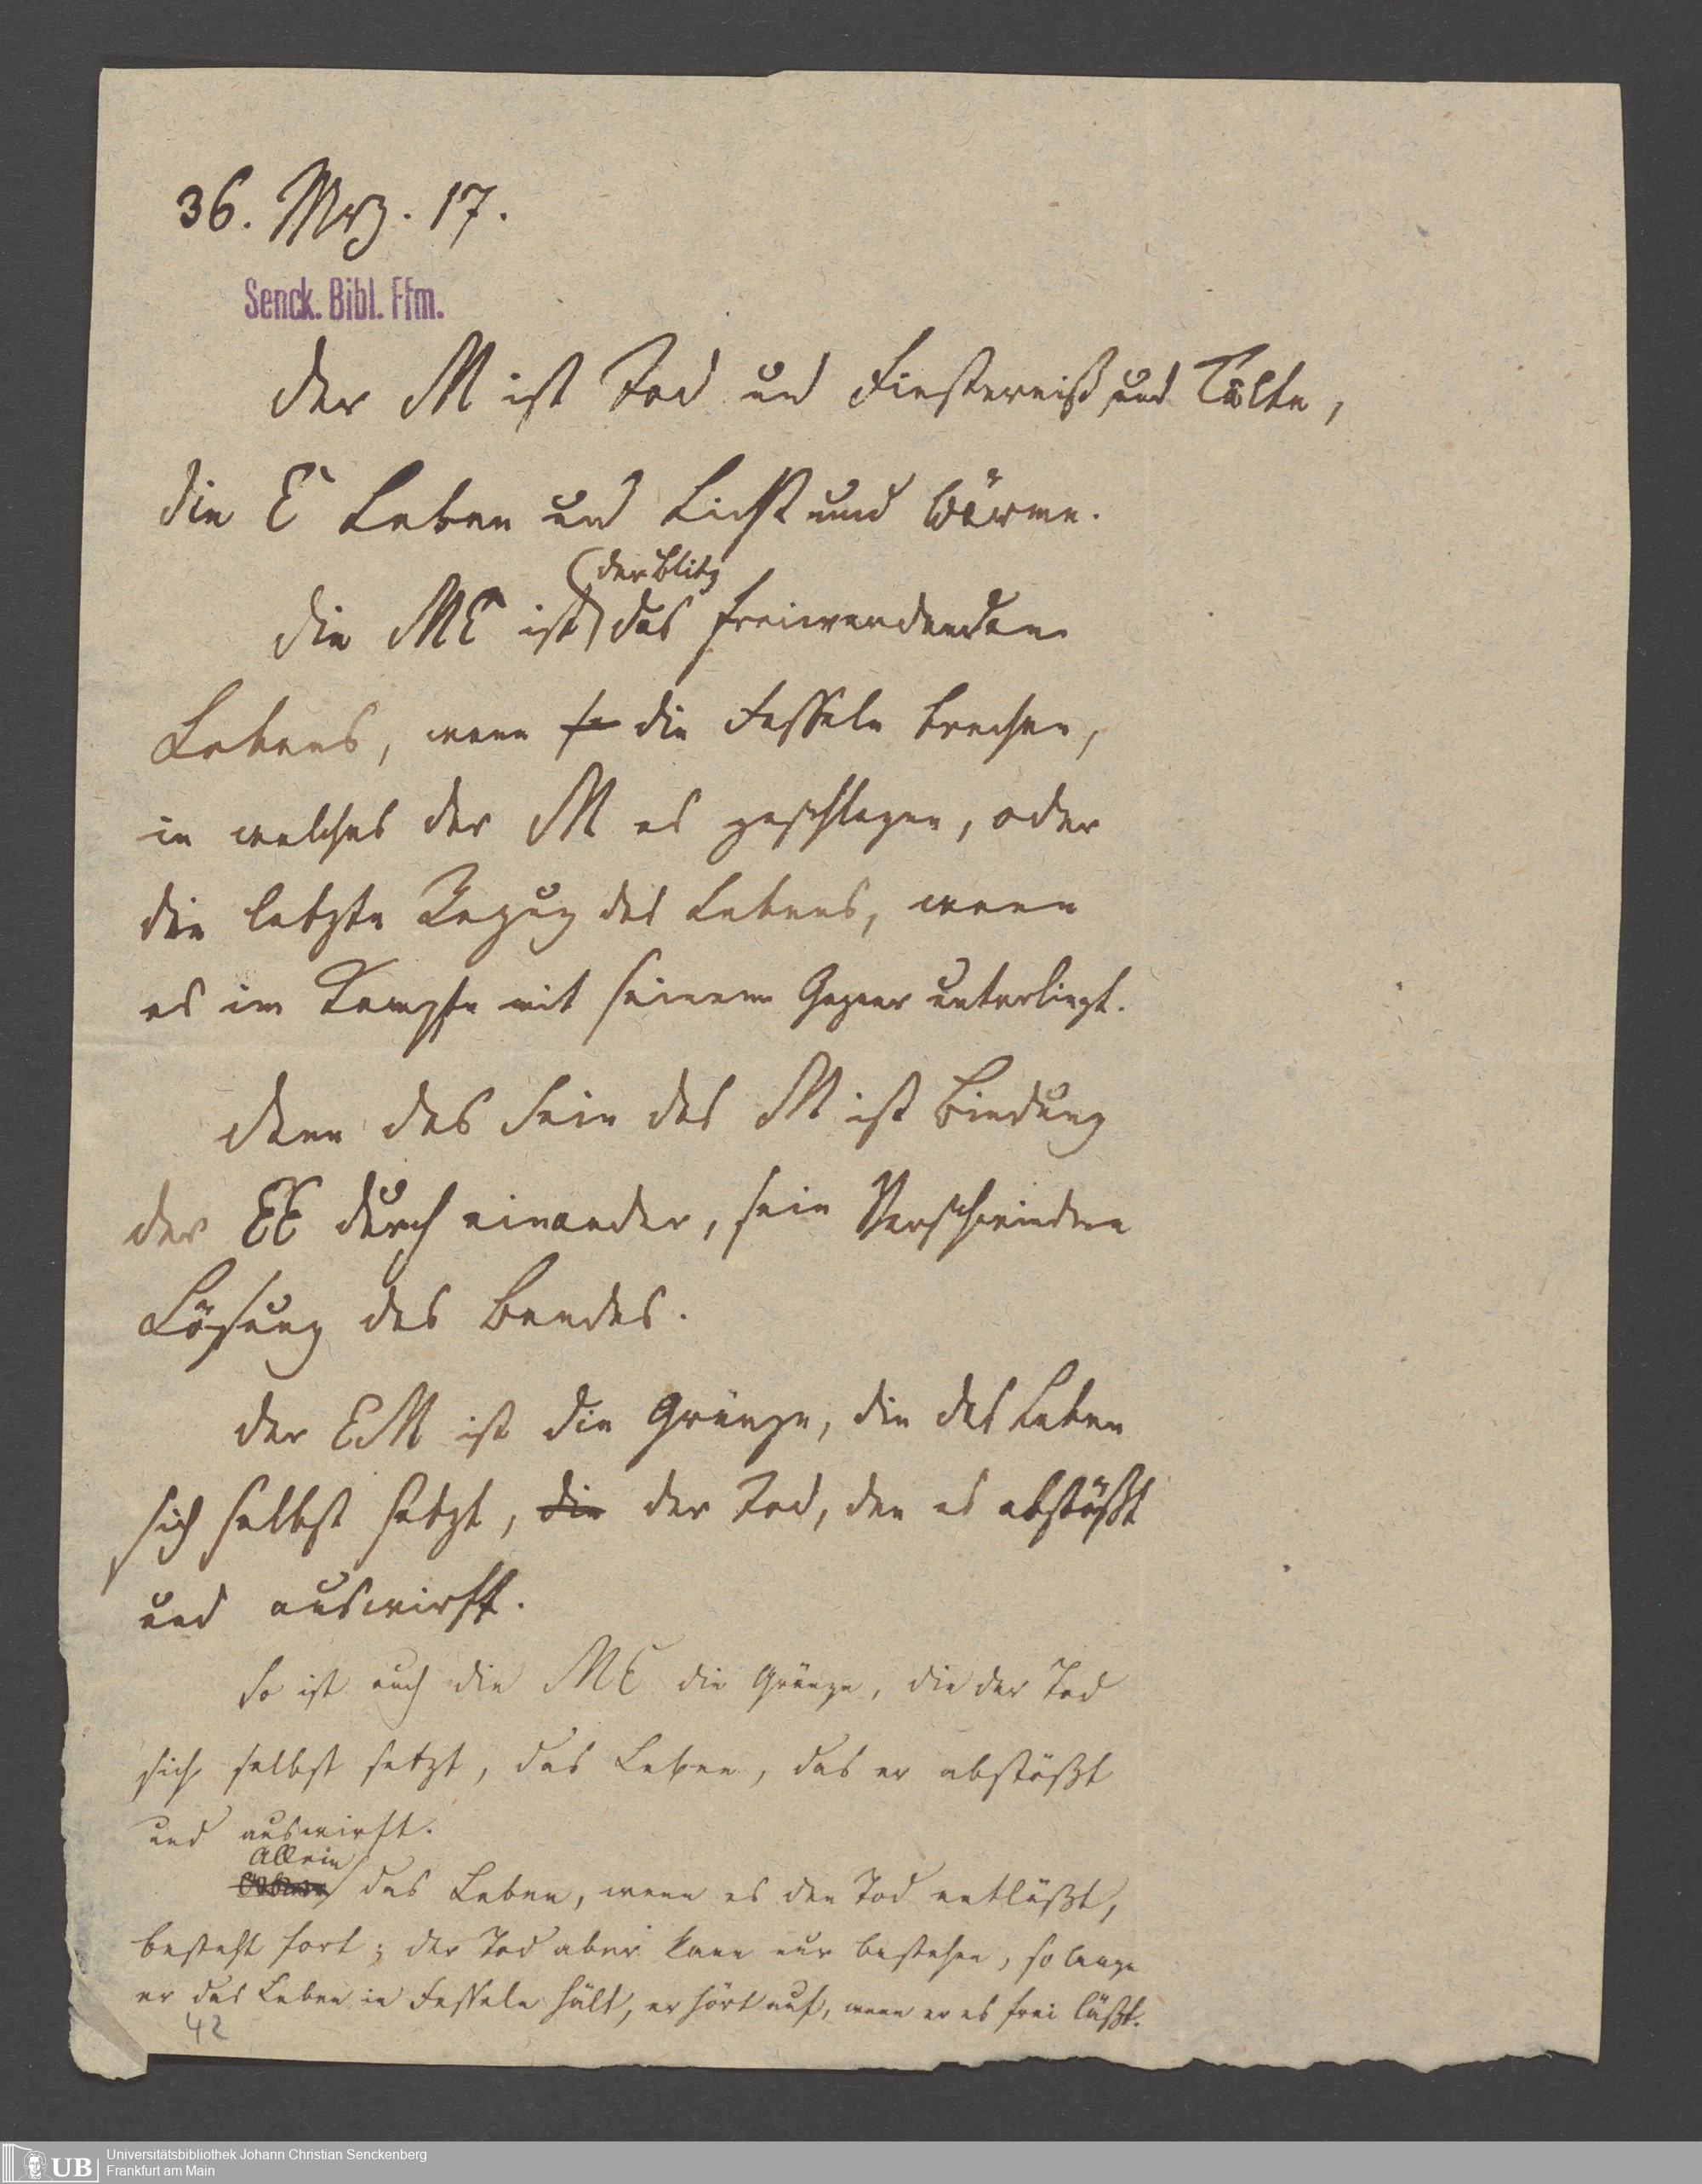 36. Mrz. 17.
Senck. Bibl. Ffm.
Der M ist Tod und Finsterniß und Kälte,
die E Leben und Licht und Wärme.
der Blitz
Die ME ist das freiwerdenden
Lebens, wenn die Fesseln brechen,
in welches der M es geschlagen, oder
die letzte des Lebens, wenn
es im Kampfe mit seinem Gegner unterliegt.
Denn das Sein des M ist Bindung
der EE durch einander, sein Verschwinden
Lösung des Bandes.
Der EM ist die Gränze, die das Leben
sich selbst setzt, die der Tod, den es abstößt
und auswirft.
So ist auch die ME die Gränze, die der Tod
sich selbst setzt, das Leben, das er abstößt
und auswirft.
Allein
das Leben, wenn es den Tod entläßt,
besteht fort; der Tod aber kann nur bestehen, so lange
er das Leben in Fesseln hält, er hört auf, wenn er es frei läßt.
42
UB
Universitätsbibliothek Johann Christian Senckenberg
Frankfurt am Main